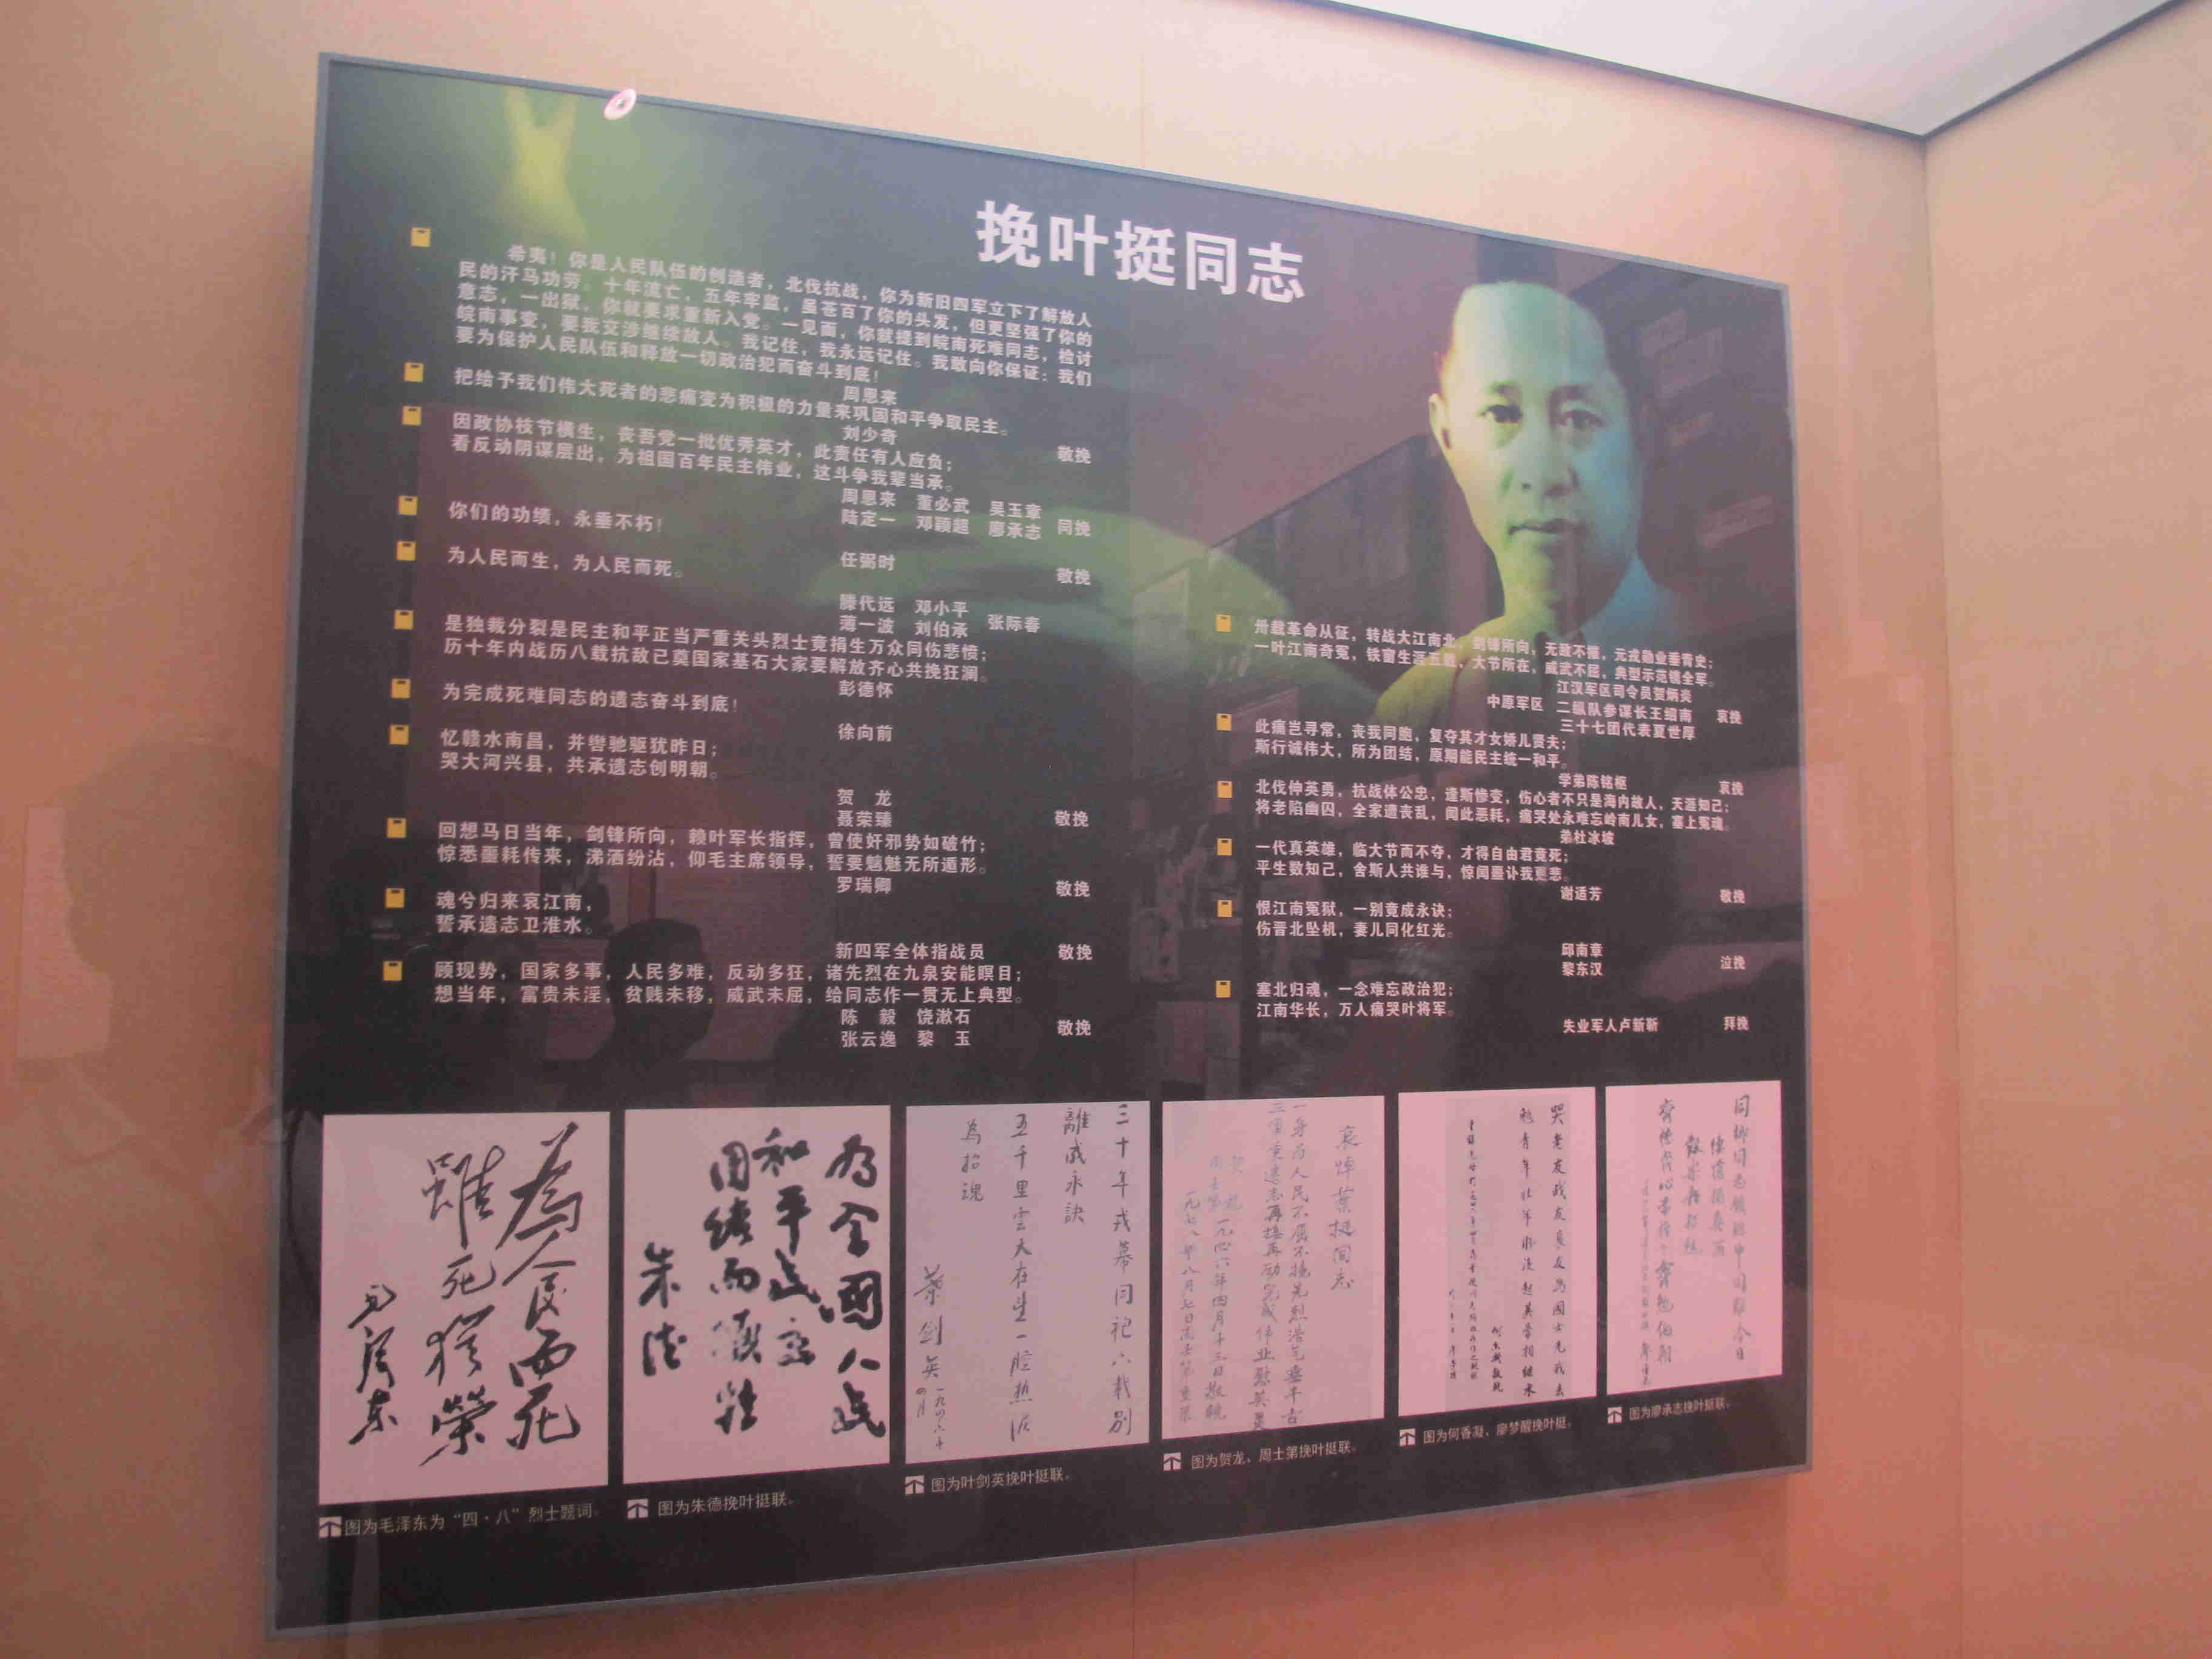 挽叶挺同志
希夷！你是人民队伍的创造者，北伐抗战，你为新旧四军立下了解放人
民的汗马功劳。十年流亡，五年牢监，虽苍百了你的头发，但更坚强了你的
意志，一出狱，你就要求重新入党。一见面，你就提到皖南死难同志，检讨
皖南事变，要我交涉继续放人。我记住，我永远记住。我敢向你保证：我们
要为保护人民队伍和释放一切政治犯而奋斗到底！
周恩来
把给予我们伟大死者的悲痛变为积极的力量来巩固和平争取民主。
刘少奇 敬挽
因政协枝节横生，丧吾党一批优秀英才，此责任有人应负；
看反动阴谋层出，为祖国百年民主伟业，这斗争我辈当承。
周恩来 董必武 吴玉章
陆定一 邓颖超 廖承志 同挽
你们的功绩，永垂不朽！
任弼时 敬挽
为人民而生，为人民而死。
滕代远 邓小平
薄一波 刘伯承 张际春
是独裁分裂是民主和平正当严重关头烈士竟捐生万众同伤悲愤；
历十年内战历八载抗敌已奠国家基石大家要解放齐心共挽狂澜。
彭德怀
为完成死难同志的遗志奋斗到底！
徐向前
忆赣水南昌，并辔驰驱犹昨日；
哭大河兴县，共承遗志创明朝。
贺 龙
聂荣臻 敬挽
回想马日当年，剑锋所向，赖叶军长指挥，曾使奸邪势如破竹；
惊悉噩耗传来，涕洒纷沾，仰毛主席领导，誓要魑魅无所遁形。
罗瑞卿 敬挽
魂兮归来哀江南，
誓承遗志卫淮水。
新四军全体指战员 敬挽
顾现势，国家多事，人民多难，反动多狂，诸先烈在九泉安能瞑目；
想当年，富贵未淫，贫贱未移，威武未屈，给同志作一贯无上典型。
陈 毅 饶漱石
张云逸 黎 玉 敬挽
卅载革命从征，转战大江南北，剑锋所向，无敌不摧，元戎勋业垂青史；
一叶江南奇冤，铁窗生涯五载，大节所在，威武不屈，典型示范镜全军。
江汉军区司令员贺炳炎
中原军区 二纵队参谋长王绍南 哀挽
三十七团代表夏世厚
此痛岂寻常，丧我同胞，复夺其才女娇儿贤夫；
斯行诚伟大，所为团结，原期能民主统一和平。
学弟陈铭枢 哀挽
北伐仲英勇，抗战体公忠，逢斯惨变，伤心者不只是海内故人，天涯知己；
将老陷幽囚，全家遭丧乱，闻此恶耗，痛哭处永难忘岭南儿女，塞上冤魂。
弟杜冰坡
一代真英雄，临大节而不夺，才得自由君竟死；
平生数知己，舍斯人共谁与，惊闻噩讣我更悲。
谢适芳 敬挽
恨江南冤狱，一别竟成永诀；
伤晋北坠机，妻儿同化红光。
邱南章
黎东汉 泣挽
塞北归魂，一念难忘政治犯；
江南华长，万人痛哭叶将军。
失业军人卢新靳 拜挽
為人民而死
雖死猶榮
毛澤东
为全國人民
和平民主
团结而犧牲
朱德
三十年戎幕同袍六載别
離成永訣
五千里雲天在望一腔热泪
為招魂
葉剑英 一九四六年
四月
哀悼葉挺同志
一身为人民不屈不撓先烈浩气垂千古
一九四六年四月十三日敬輓
一九七八年八月七日周士第重录
哭老友战友良友为国士先我去
勉青年壮年
图为毛泽东为“四·八”烈士题词。
图为朱德挽叶挺联。
图为叶剑英挽叶挺联。
图为贺龙、周士第挽叶挺联。
图为何香凝、廖梦醒挽叶挺。
图为廖承志挽叶挺联。